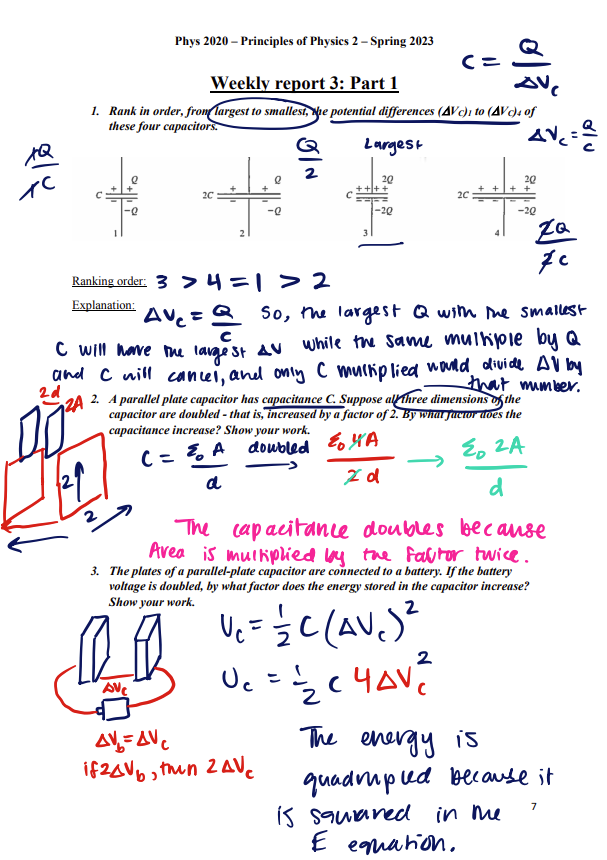 Phys 2020 – Principles of Physics 2 – Spring 2023
C = Q / ΔVc
Weekly report 3: Part 1
1. Rank in order, from largest to smallest, the potential differences (ΔVC)1 to (ΔVC)4 of
these four capacitors.
ΔVc = Q/C
xQ / xC
Q/2
Largest
C + + + + Q −Q 1
2C + + Q −Q 2
C ++++ 2Q −2Q 3
2C + + + + 2Q −2Q 4
2Q / 2C
Ranking order: 3 > 4 = 1 > 2
Explanation: ΔVc = Q/C So, the largest Q with the smallest
C will have the largest ΔV while the same multiple by Q
and C will cancel, and only C multiplied would divide ΔV by
that number.
2. A parallel plate capacitor has capacitance C. Suppose all three dimensions of the
capacitor are doubled - that is, increased by a factor of 2. By what factor does the
capacitance increase? Show your work.
2d
2A
2
2
C = ε0 A / d doubled → ε0 4A / 2 d → ε0 2A / d
The capacitance doubles because
Area is multiplied by the factor twice.
3. The plates of a parallel-plate capacitor are connected to a battery. If the battery
voltage is doubled, by what factor does the energy stored in the capacitor increase?
Show your work.
Uc = 1/2 C (ΔVc)²
Uc = 1/2 C 4ΔVc²
ΔVc
ΔVb = ΔVc
if 2ΔVb, then 2ΔVc
The energy is
quadrupled because it
is squared in the
E equation.
7